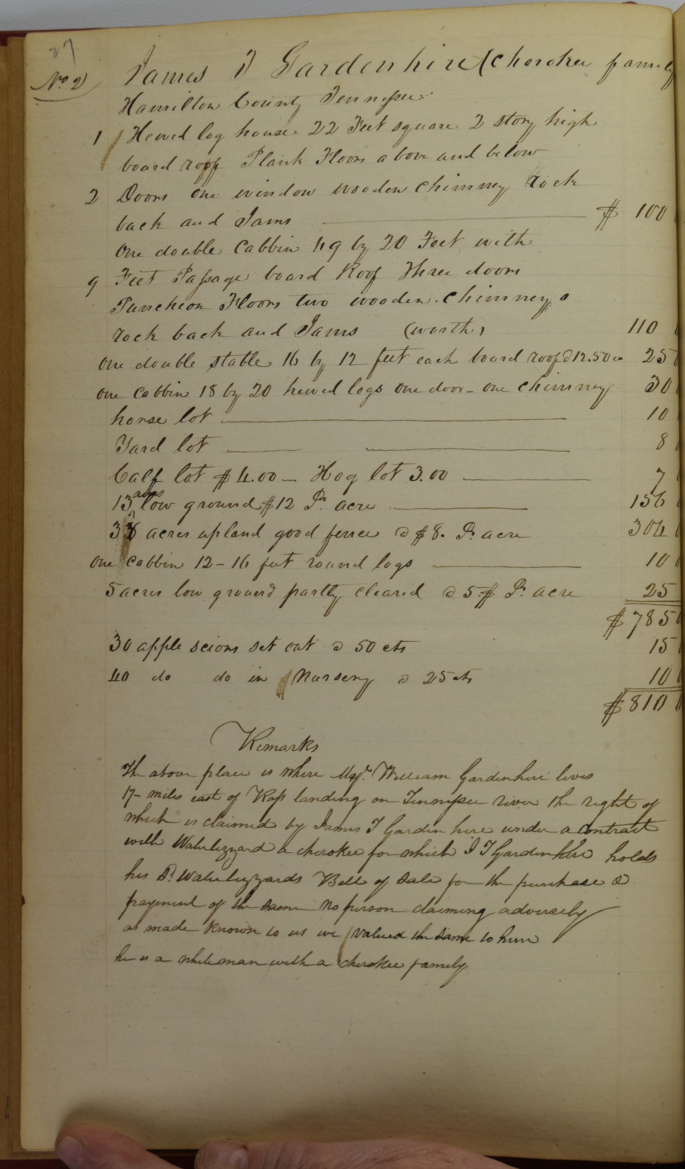 27
No 2) James T Gardenhire (Cherokee family
Hamilton County Tennessee
1 Hewed log house 22 Feet square 2 story high
board roof Plank Floors above and below
2 Doors one window wooden chimney Rock
back and Jams $ 100
one double Cabbin 49 by 20 Feet with
9 Feet Passage board Roof Three doors
Puncheon Floors two wooden chimneys
rock back and Jams (worth) 110
one double stable 16 by 12 feet each board roof @ 12.50 25
one Cabbin 18 by 20 hewed logs one door - one Chimney 30
horse lot 10
Yard lot 8
Calf lot $4.00 - Hog lot 3.00 7
13 acres low ground $12 Pr. acre 156
38 acres upland good fence @ $8. Pr. acre 304
one Cabbin 12-16 feet round logs 10
5 acres low ground partly cleared @ 5$ Pr. acre 25
$785
30 apple scions set out @ 50 cts 15
40 do do in Nursery @ 25 cts 10
$810
Remarks
The above place is where Majr. William Gardenhire lives
17 miles east of Ross landing on Tennessee river the right of
which is claimed by James T Gardenhire under a contract
with Waterlizzard a cherokee for which J T Gardenhire holds
his Sd. Waterlizzards Bill of Sale for the purchase &
payment of the same No person claiming adversely
as made known to us we valued the same to him
he is a whiteman with a cherokee family